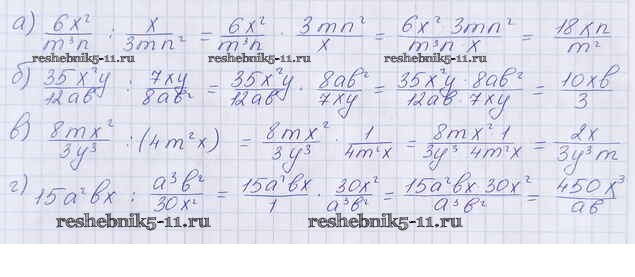 а) 6x²/m³n : x/3mn² = 6x²/m³n · 3mn²/x = 6x² · 3mn²/m³n x = 18xn/m²
reshebnik5-11.ru reshebnik5-11.ru
б) 35x²y/12ав : 7xy/8ав² = 35x²y/12ав · 8ав²/7xy = 35x²y · 8ав²/12ав · 7xy = 10xв/3
в) 8mx²/3y³ : (4m²x) = 8mx²/3y³ · 1/4m²x = 8mx² · 1/3y³ 4m²x = 2x/3y³m
г) 15а²вx : а³в²/30x² = 15а²вx/1 · 30x²/а³в² = 15а²вx 30x²/а³в² = 450x³/ав
reshebnik5-11.ru reshebnik5-11.ru